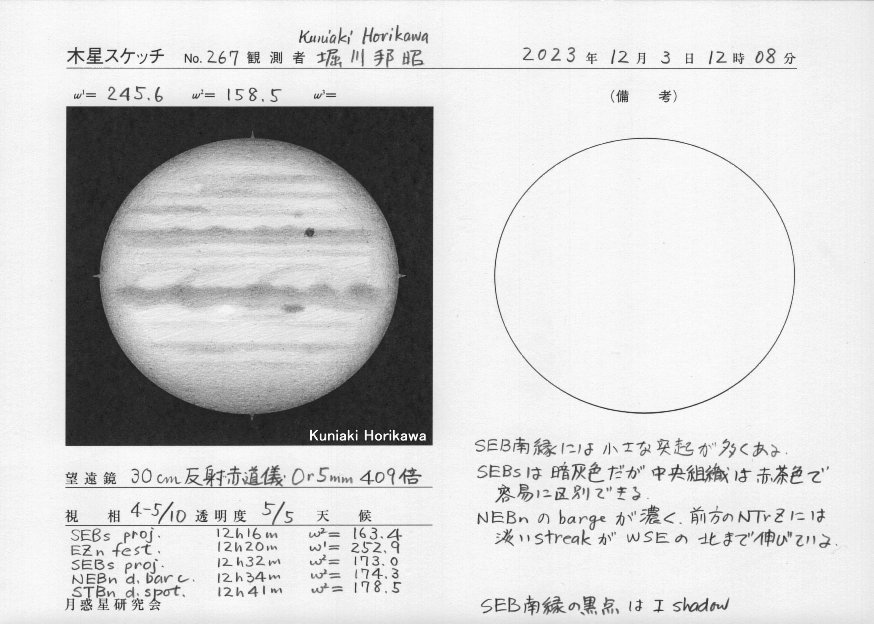 Kuniaki Horikawa
木星スケッチ No. 267 観測者 堀川邦昭 2023年 12月 3日 12時 08分
ω¹= 245.6 ω²= 158.5 ω³=
(備 考)
Kuniaki Horikawa
SEB南縁には小さな突起が多くある.
SEBsは暗灰色だが中央組織は赤茶色で
容易に区別できる.
NEBnのbargeが濃く、前方のNTrZには
淡いstreakがWSEの北まで伸びている.
SEB南縁の黒点はI shadow
望遠鏡 30cm反射赤道儀 Or5mm 409倍
視相 4-5/10 透明度 5/5 天候
SEBs proj. 12h16m ω²= 163.4
EZn fest. 12h20m ω¹= 252.9
SEBs proj. 12h32m ω²= 173.0
NEBn d. bar c. 12h34m ω²= 174.3
STBn d. spot. 12h41m ω²= 178.5
月惑星研究会